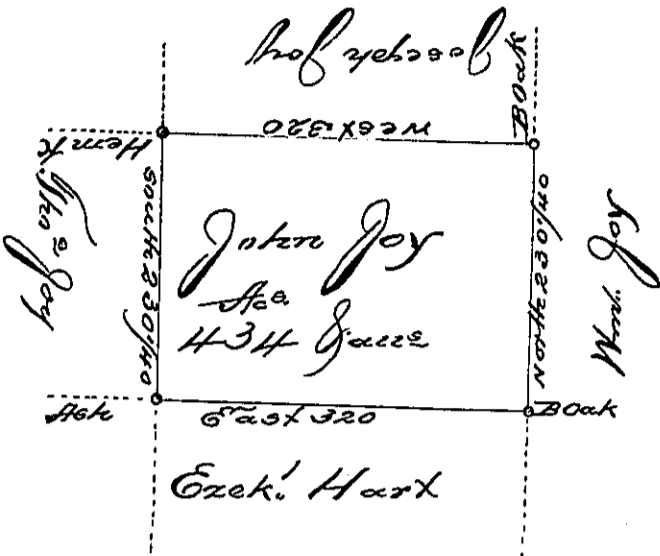 Joseph Joy
BOak
West 320
Hemk.
Tho.s Joy
South 230
John Joy
Acs
434
North 230
Wm. Joy
Ash
East 320
BOak
Ezek.l Hart